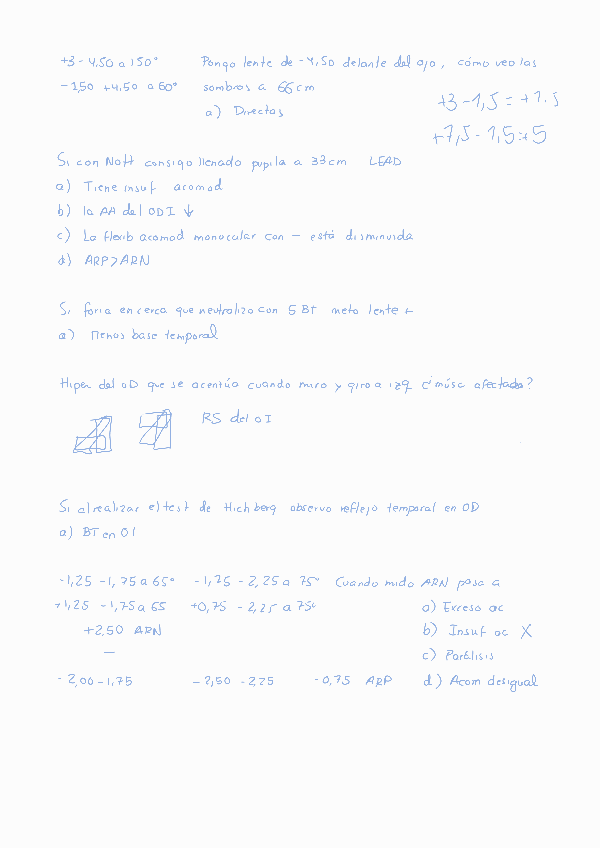 +3 - 4,50 a 150° Pongo lente de -4,50 delante del ojo, cómo veo las
-1,50 +4,50 a 60° sombras a 66 cm
a) Directas
+3 - 1,5 = +1.5
Si con Nott consigo llenado pupila a 33 cm LEAD
a) Tiene insuf acomod
b) la AA del ODI ↓
c) La flexib acomod monocular con - está disminuida
d) ARP > ARN
Si foria en cerca que neutralizo con 5 BT meto lente +
a) Menos base temporal
Hiper del OD que se acentúa cuando miro y giro a izq ¿músc afectado?
RS del OI
Si al realizar el test de Hichberg observo reflejo temporal en OD
a) BT en OI
-1,25 -1,75 a 65° -1,75 - 2,25 a 75° Cuando mido ARN pasa a
+1,25 -1,75 a 65 +0,75 - 2,25 a 75° a) Exceso ac
+2,50 ARN b) Insuf ac X
— c) Parálisis
-2,00 -1,75 -2,50 -2,25 -0,75 ARP d) Acom desigual